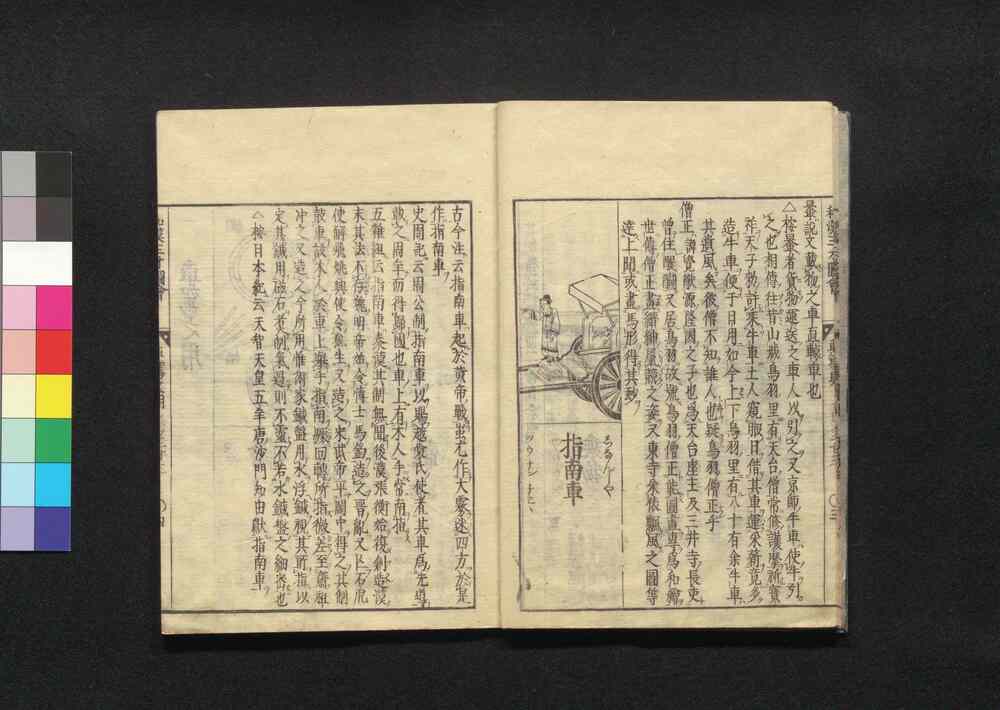 輂説文載物之車直轅車也
△按輂者貨物運送之車人以引之又京師牛車使牛引
之也相傳往昔山城鳥羽里有天台僧常修護摩祈寳
祚天子勅許乘牛車土人窺暇日借其車運柴薪荒多
造牛車便于日用如今上下鳥羽里有八十有余牛車
其遺風矣後僧不知誰人也疑鳥羽僧正乎
僧正諱覚猷源隆国之子也為天台座主及三井寺長吏
曾住醍醐又居鳥羽故號鳥羽僧正能圖畫專為和郷
世傳僧正畫縉紳屎競之姿又東寺米俵飄風之圖等
達上聞或畫馬形得其妙
指南車
しるべくるま
古今注云指南車起於黄帝戰蚩尤作大霧迷四方於是
作指南車
史周紀云周公制指南車以賜越裳氏使者其車為先導
載之周年而得歸國也車上有木人手常南指
五雜組云指南車秦漢其制無聞後漢張衡始復創造漢
末其法不存魏明帝始令博士馬鈞造之晋亂又亡石虎
使解飛姚興使令狐生又造之宋武帝平關中得之其制
鼓車設木人於車上擧手指南雖回轉所指微差至齋祖
冲之又造之今所用惟術家鍼盤用水浮鍼視其所指以
定其鍼用磁石煑制氣過則不靈不若水鍼盤之細密也
△按日本紀云天智天皇五年唐沙門知由獻指南車